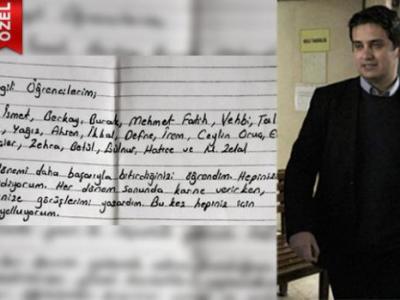 ÖZEL
gili Öğrencilerim,
İsmet, Berkay, Burak, Mehmet Fatih, Vehbi,
Yağız, Ahsen, İkbal, Defne, İrem, Ceylin Oruç, E
Zehra, Betül, Gülnur, Hatice ve
dönemi daha başarıyla bitirdiğinizi öğrendim. Hepinize
ediyorum. Her dönem sonunda karne verirken,
nize görüşlerimi yazardım. Bu kez hepiniz için
yolluyorum.